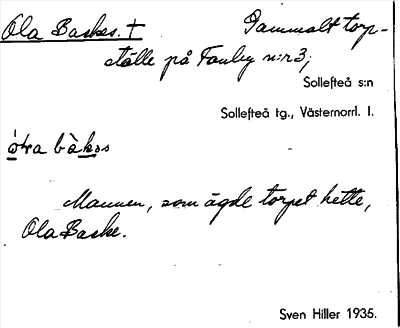 Ola Baskes. † Gammalt torp-
ställe på Fanby n:r 3;
Sollefteå s:n
Sollefteå tg., Västernorrl. l.
Mannen, som ägde torpet hette,
Ola Baske.
Sven Hiller 1935.